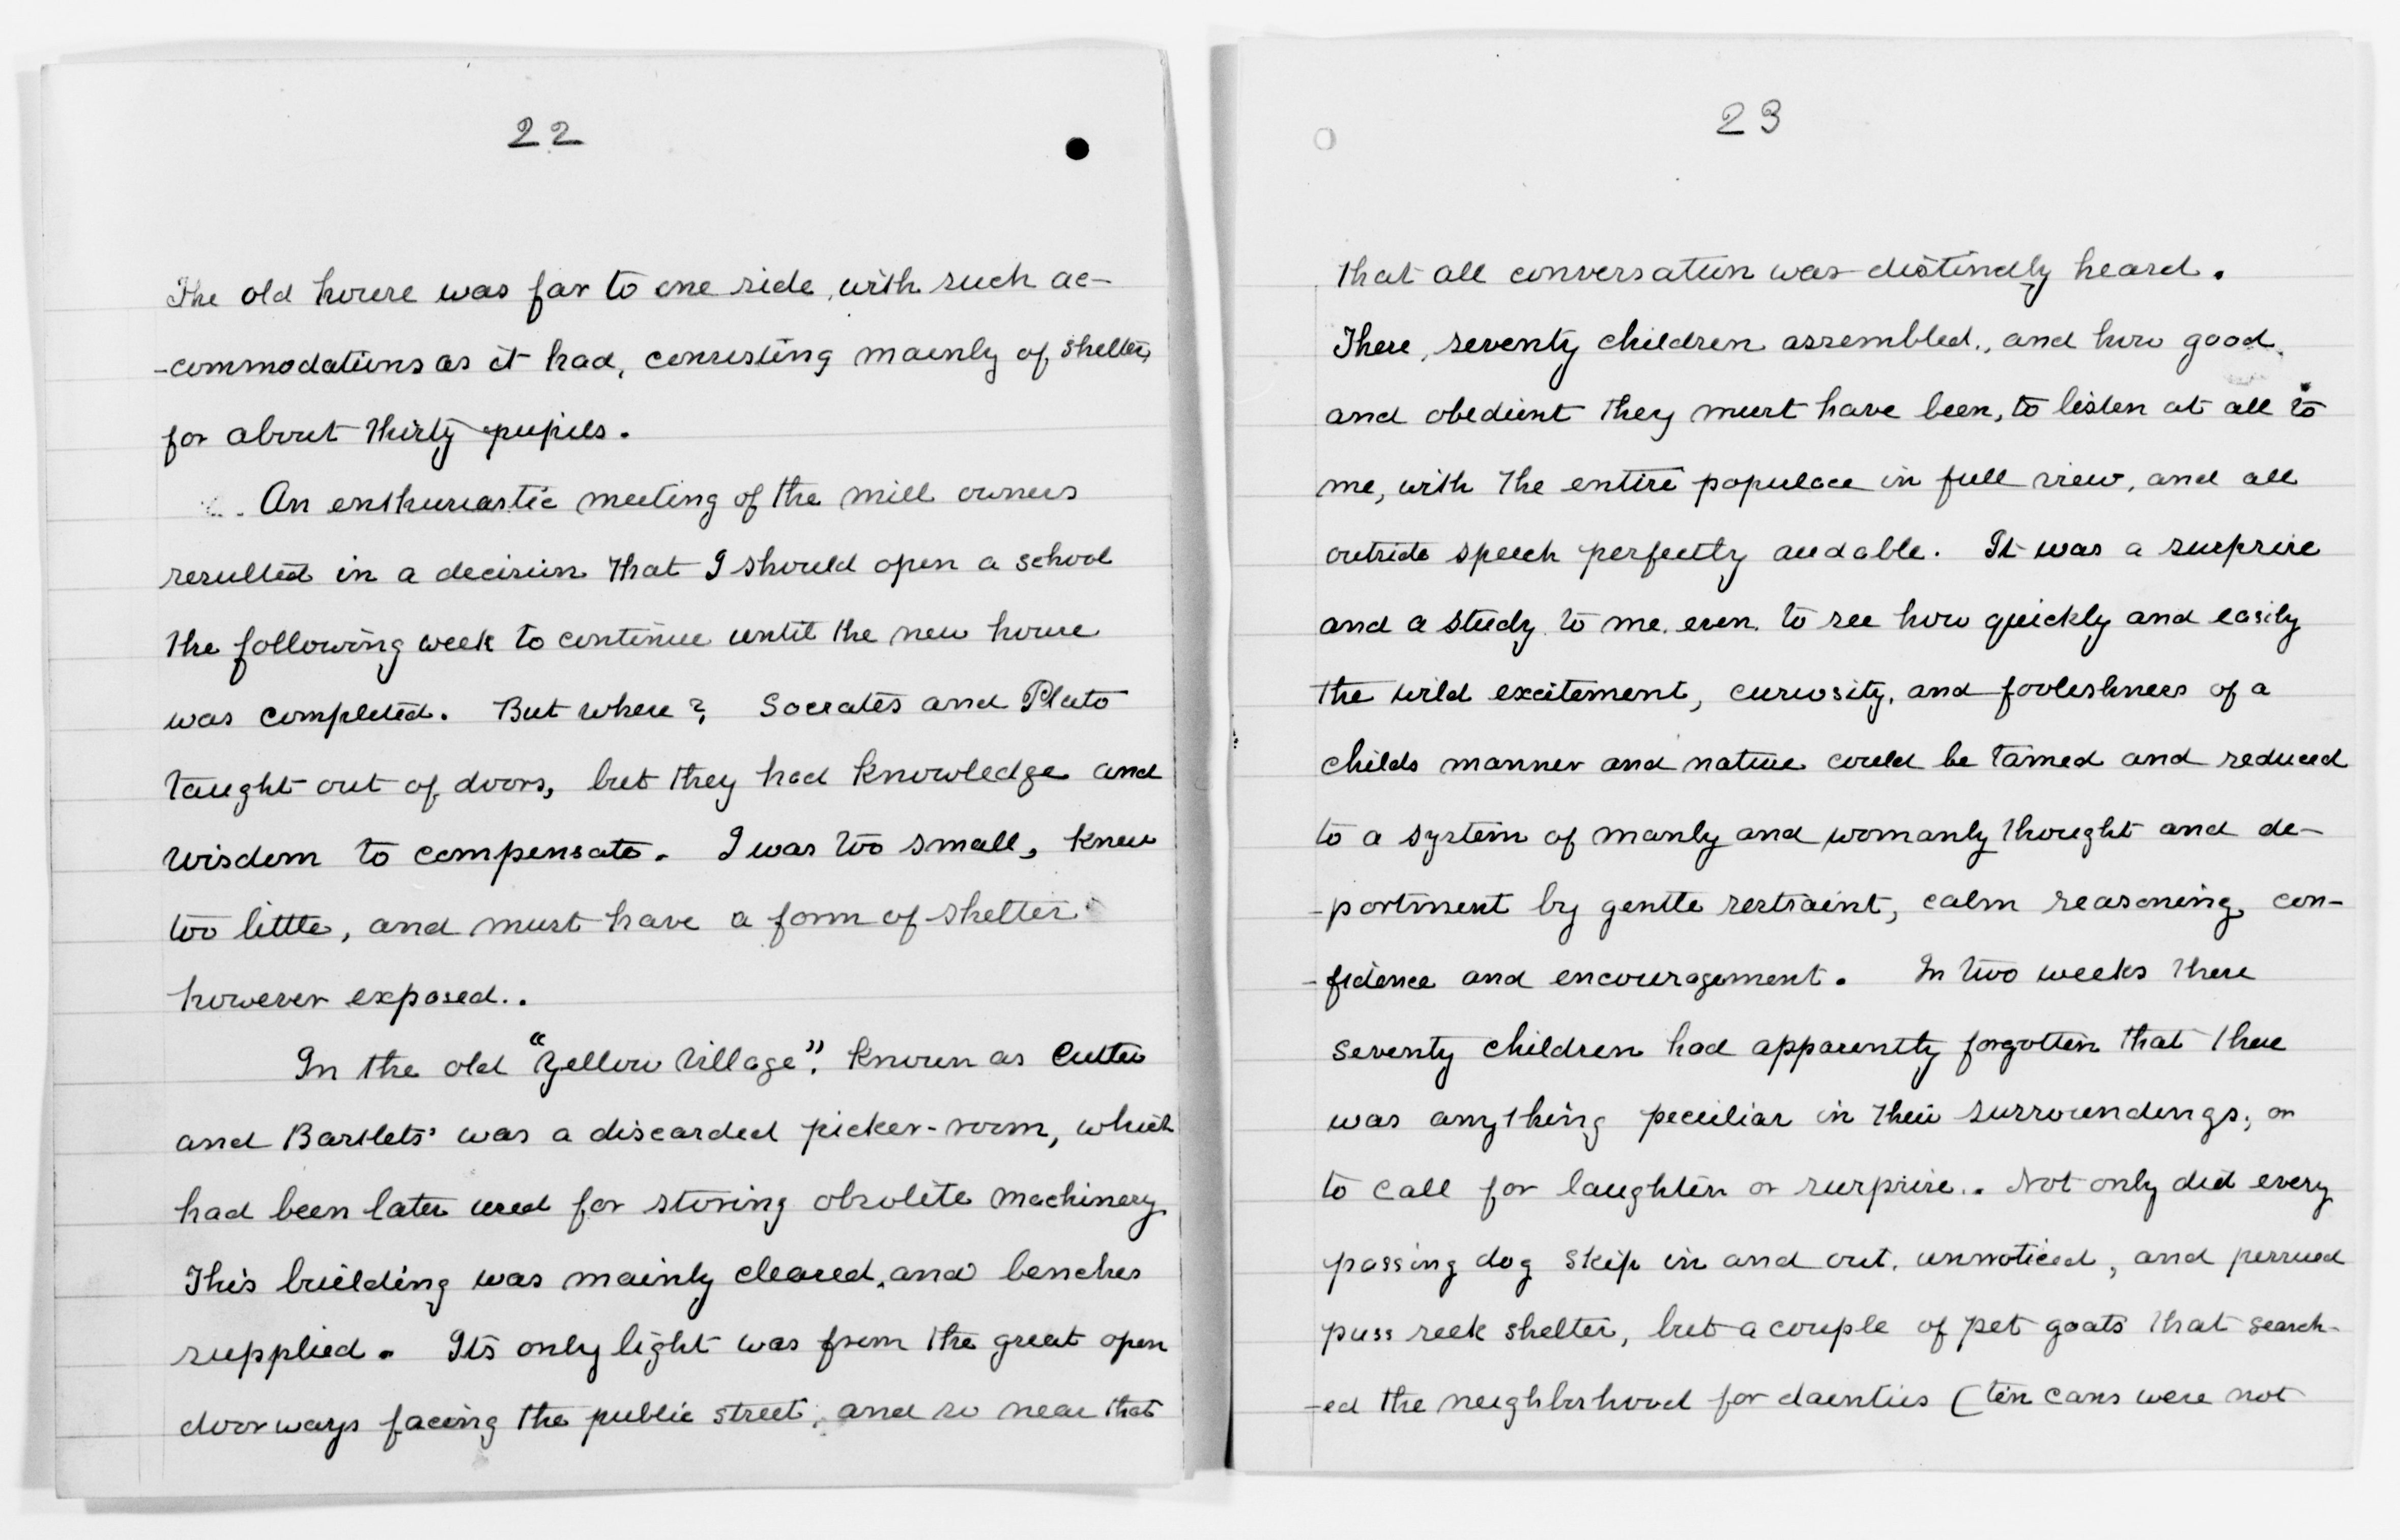 22
The old house was far to one side, with such ac-
-commodations as it had, consisting mainly of shelter,
for about thirty pupils.
An enthusiastic meeting of the mill owners
resulted in a decision that I should open a school
the following week to continue until the new house
was completed. But where? Socrates and Plato
taught out of doors, but they had knowledge and
wisdom to compensate. I was too small, knew
too little, and must have a form of shelter
however exposed..
In the old "Yellow Village". Known as Cutter
and Bartlets' was a discarded picker-room, which
had been later used for storing obsolete machinery
This building was mainly cleared, and benches
supplied. Its only light was from the great open
doorways facing the public street, and so near that
23
that all conversation was distinctly heard.
There, seventy children assembled, and how good,
and obedient they must have been, to listen at all to
me, with the entire populace in full view, and all
outside speech perfectly audable. It was a surprise
and a study to me even to see how quickly and easily
the wild excitement, curiosity, and foolishness of a
childs manner and nature could be tamed and reduced
to a system of manly and womanly thought and de-
-portment by gentle restraint, calm reasoning, con-
-fidence and encouragement. In two weeks these
seventy children had apparently forgotten that there
was anything peculiar in their surroundings, or
to call for laughter or surprise.. Not only did every
passing dog skip in and out, unnoticed, and persued
puss seek shelter, but a couple of pet goats that search-
-ed the neighborhood for dainties (tin cans were not